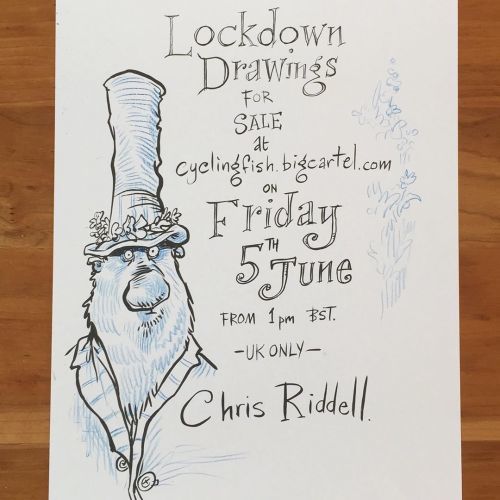 Lockdown
Drawings
FOR
SALE
at
cyclingfish.bigcartel.com
ON
Friday
5TH
June
FROM 1pm BST.
—UK ONLY—
Chris Riddell.